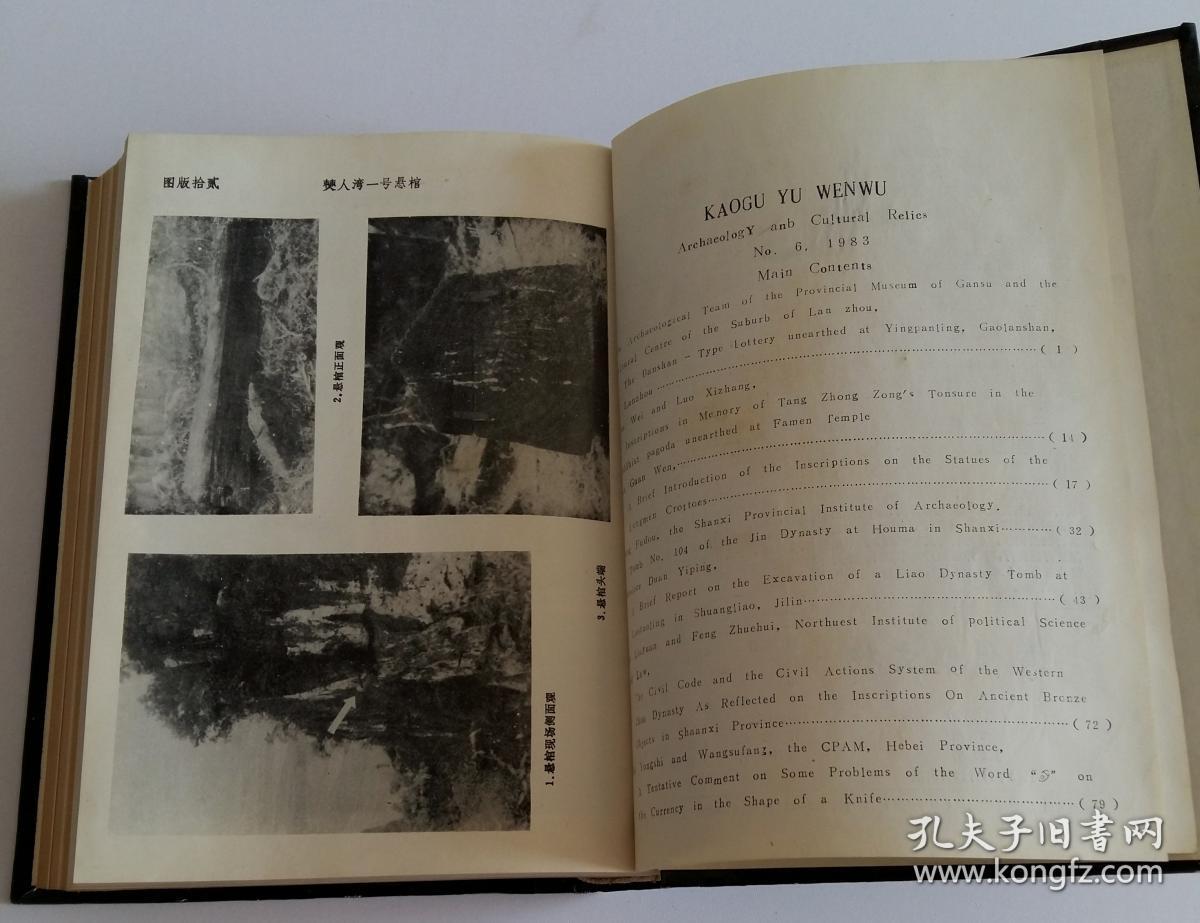 图版拾贰
僰人湾一号悬棺
2.悬棺正面观
3.悬棺头端
1.悬棺现场侧面观
KAOGU YU WENWU
ArchaeologY anb Cultural Relics
No. 6, 1983
Main Contents
Archaeological Team of the Provincial Museum of Gansu and the
Centre of the Suburb of Lan zhou,
The Banshan - Type Lottery unearthed at Yingpanling, Gaolanshan,
Lanzhou ( 1 )
Wei and Luo Xizhang,
Inscriptions in Memory of Tang Zhong Zong's Tonsure in the
pagoda unearthed at Famen Temple
Guan Wen, ( 14 )
Brief Introduction of the Inscriptions on the Statues of the
( 17 )
Fudou, the Shanxi Provincial Institute of Archaeology.
Tomb No. 104 of the Jin Dynasty at Houma in Shanxi ( 32 )
Duan Yiping,
Brief Report on the Excavation of a Liao Dynasty Tomb at
in Shuangliao, Jilin ( 43 )
and Feng Zhuehui, Northuest Institute of political Science
Law,
Civil Code and the Civil Actions System of the Western
Dynasty As Reflected on the Inscriptions On Ancient Bronze
Objects in Shaanxi Province ( 72 )
Yongshi and Wangsufang, the CPAM, Hebei Province,
Tentative Comment on Some Problems of the Word “ ” on
Currency in the Shape of a Knife ( 79 )
孔夫子旧书网
www.kongfz.com